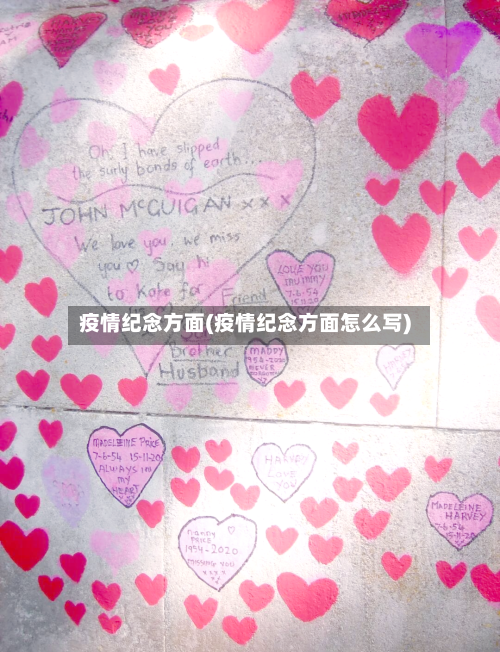 Oh! I have slipped
the surly bonds of earth...
JOHN McGUIGAN x x x
We love you, we miss
you ♡ Say hi
to Kate for
Friend
疫情纪念方面(疫情纪念方面怎么写)
Brother
Husband
LOVE YOU
MUMMY
7-6-54
15-11-20
MADDY
1954-2020
NEVER
HARVEY
MADELEINE PRICE
7-6-54 15-11-20
ALWAYS IN
MY
HEART
LOVE
YOU
NANNY
PRICE
1954-2020
MISSING YOU
MADELEINE
HARVEY
7-6-54
15-11-20